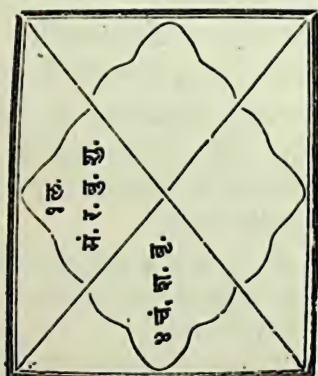 १ल.
मं. र. बु. शु.
४ चं. श. बृ.